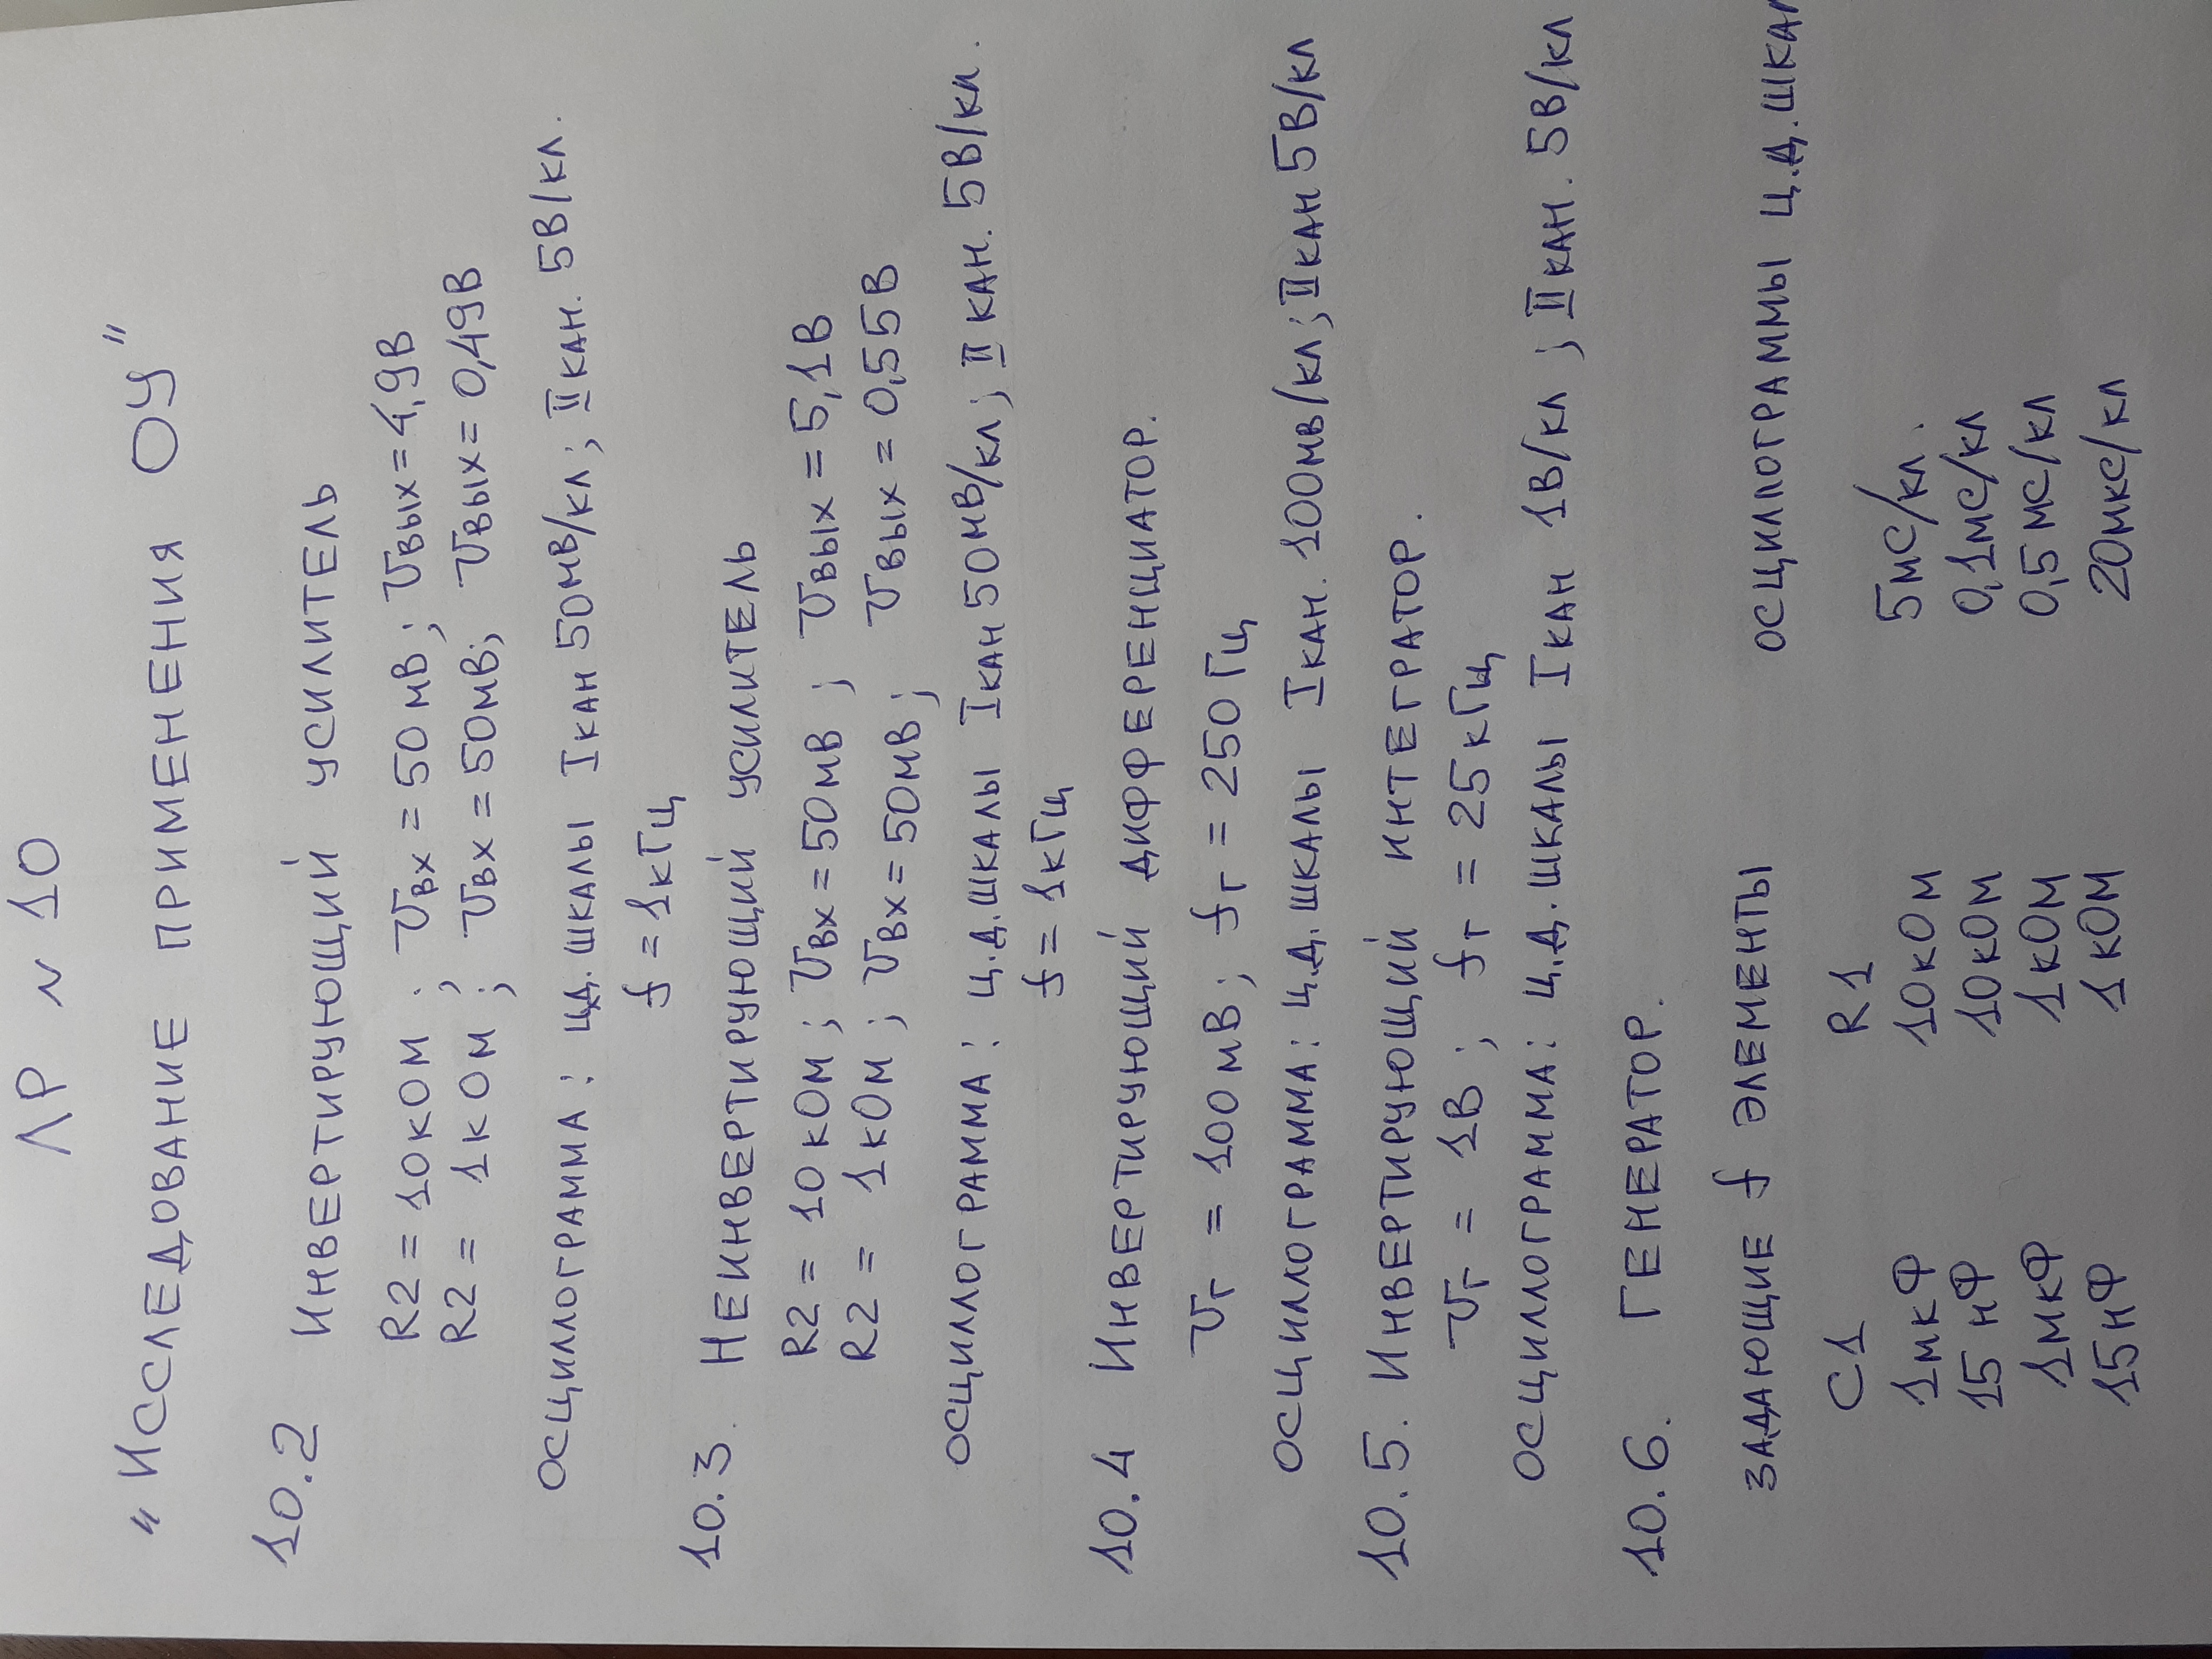 ЛР N 10
"Исследование применения ОУ"
10.2 Инвертирующий усилитель
R2 = 10кОм ; Uвх = 50мВ ; Uвых = 4,9В
R2 = 1кОм ; Uвх = 50мВ; Uвых = 0,49В
осциллограмма : ц.д. шкалы I кан 50мВ/кл ; II кан. 5В/кл.
f = 1кГц
10.3. Неинвертирующий усилитель
R2 = 10кОм ; Uвх = 50мВ ; Uвых = 5,1В
R2 = 1кОм ; Uвх = 50мВ ; Uвых = 0,55В
осциллограмма : ц.д.шкалы I кан 50мВ/кл ; II кан. 5В/кл.
f = 1кГц
10.4 Инвертирующий дифференциатор.
Uг = 100мВ ; fг = 250Гц
осциллограмма : ц.д. шкалы I кан. 100мв/кл ; II кан 5В/кл
10.5. Инвертирующий интегратор.
Uг = 1В ; fг = 25кГц
осциллограмма : ц.д. шкалы I кан 1В/кл ; II кан. 5В/кл
10.6. Генератор.
задающие f элементы осциллограммы ц.д.шкал
C1 R1
1мкФ 10кОм 5мс/кл.
15нФ 10кОм 0,1мс/кл
1мкФ 1кОм 0,5мс/кл
15нФ 1кОм 20мкс/кл